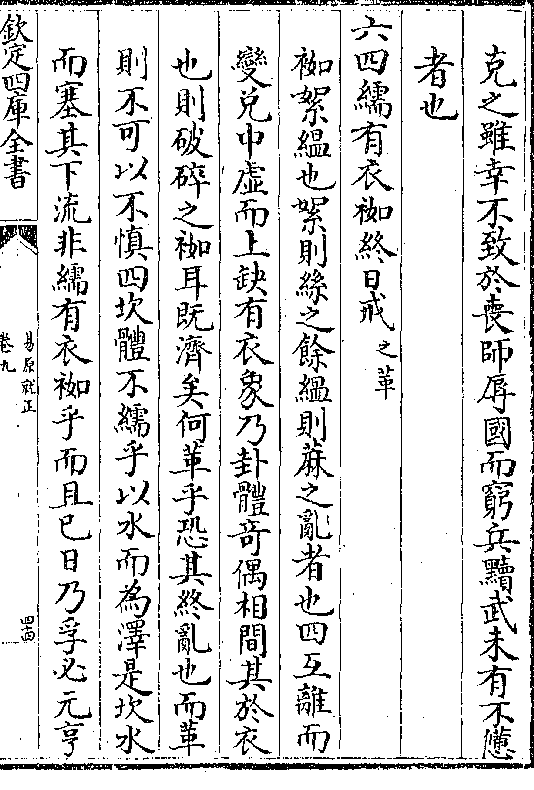 克之雖幸不致於喪師辱國而窮兵黷武未有不憊
者也
六四繻有衣袽終日戒之革
袽絮緼也絮則絲之餘緼則蔴之亂者也四互離而
變兌中虛而上缺有衣象乃卦體奇偶相間其於衣
也則破碎之袽耳既濟矣何革乎恐其終亂也而革
則不可以不慎四坎體不繻乎以水而為澤是坎水
而塞其下流非繻有衣袽乎而且巳日乃孚必元亨
欽定四庫全書
易原就正
卷九
四十四